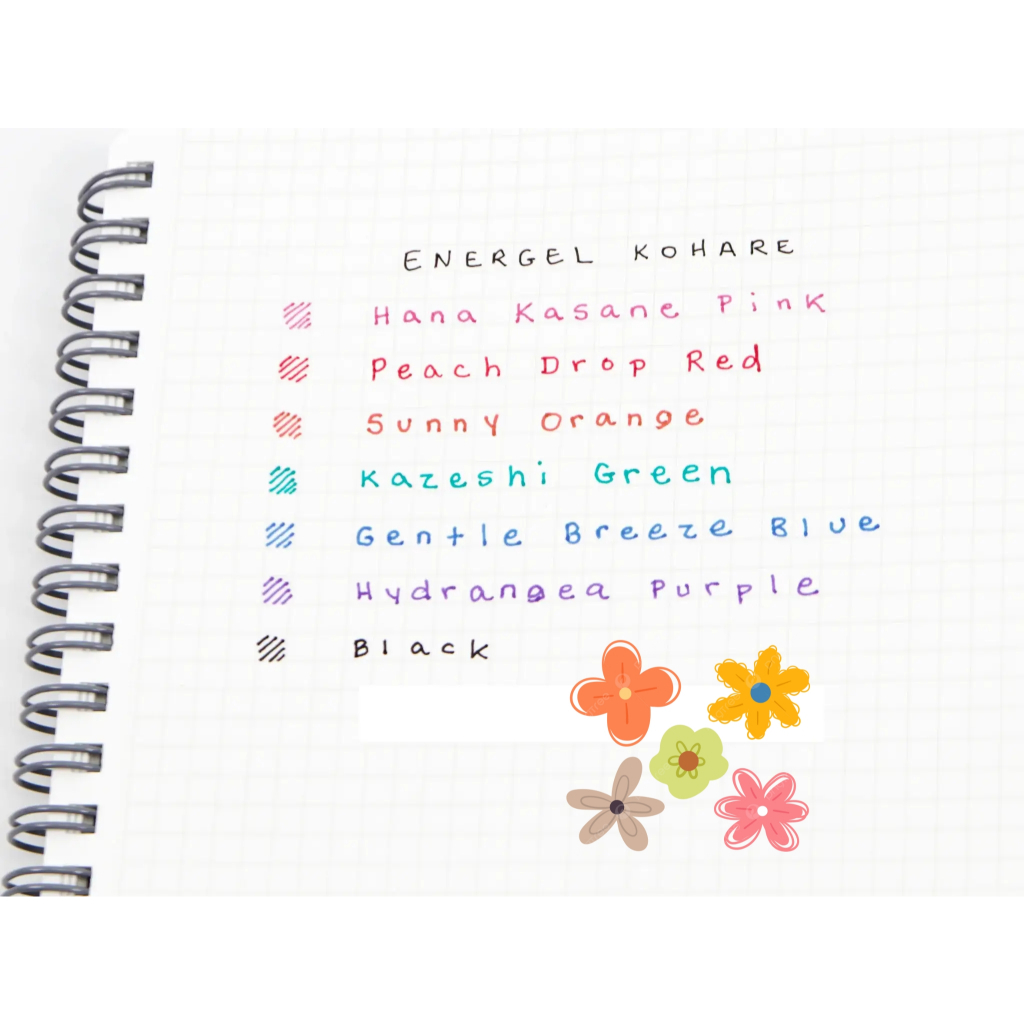 ENERGEL KOHARE
Hana Kasane Pink
Peach Drop Red
Sunny Orange
Kazeshi Green
Gentle Breeze Blue
Hydrangea Purple
Black